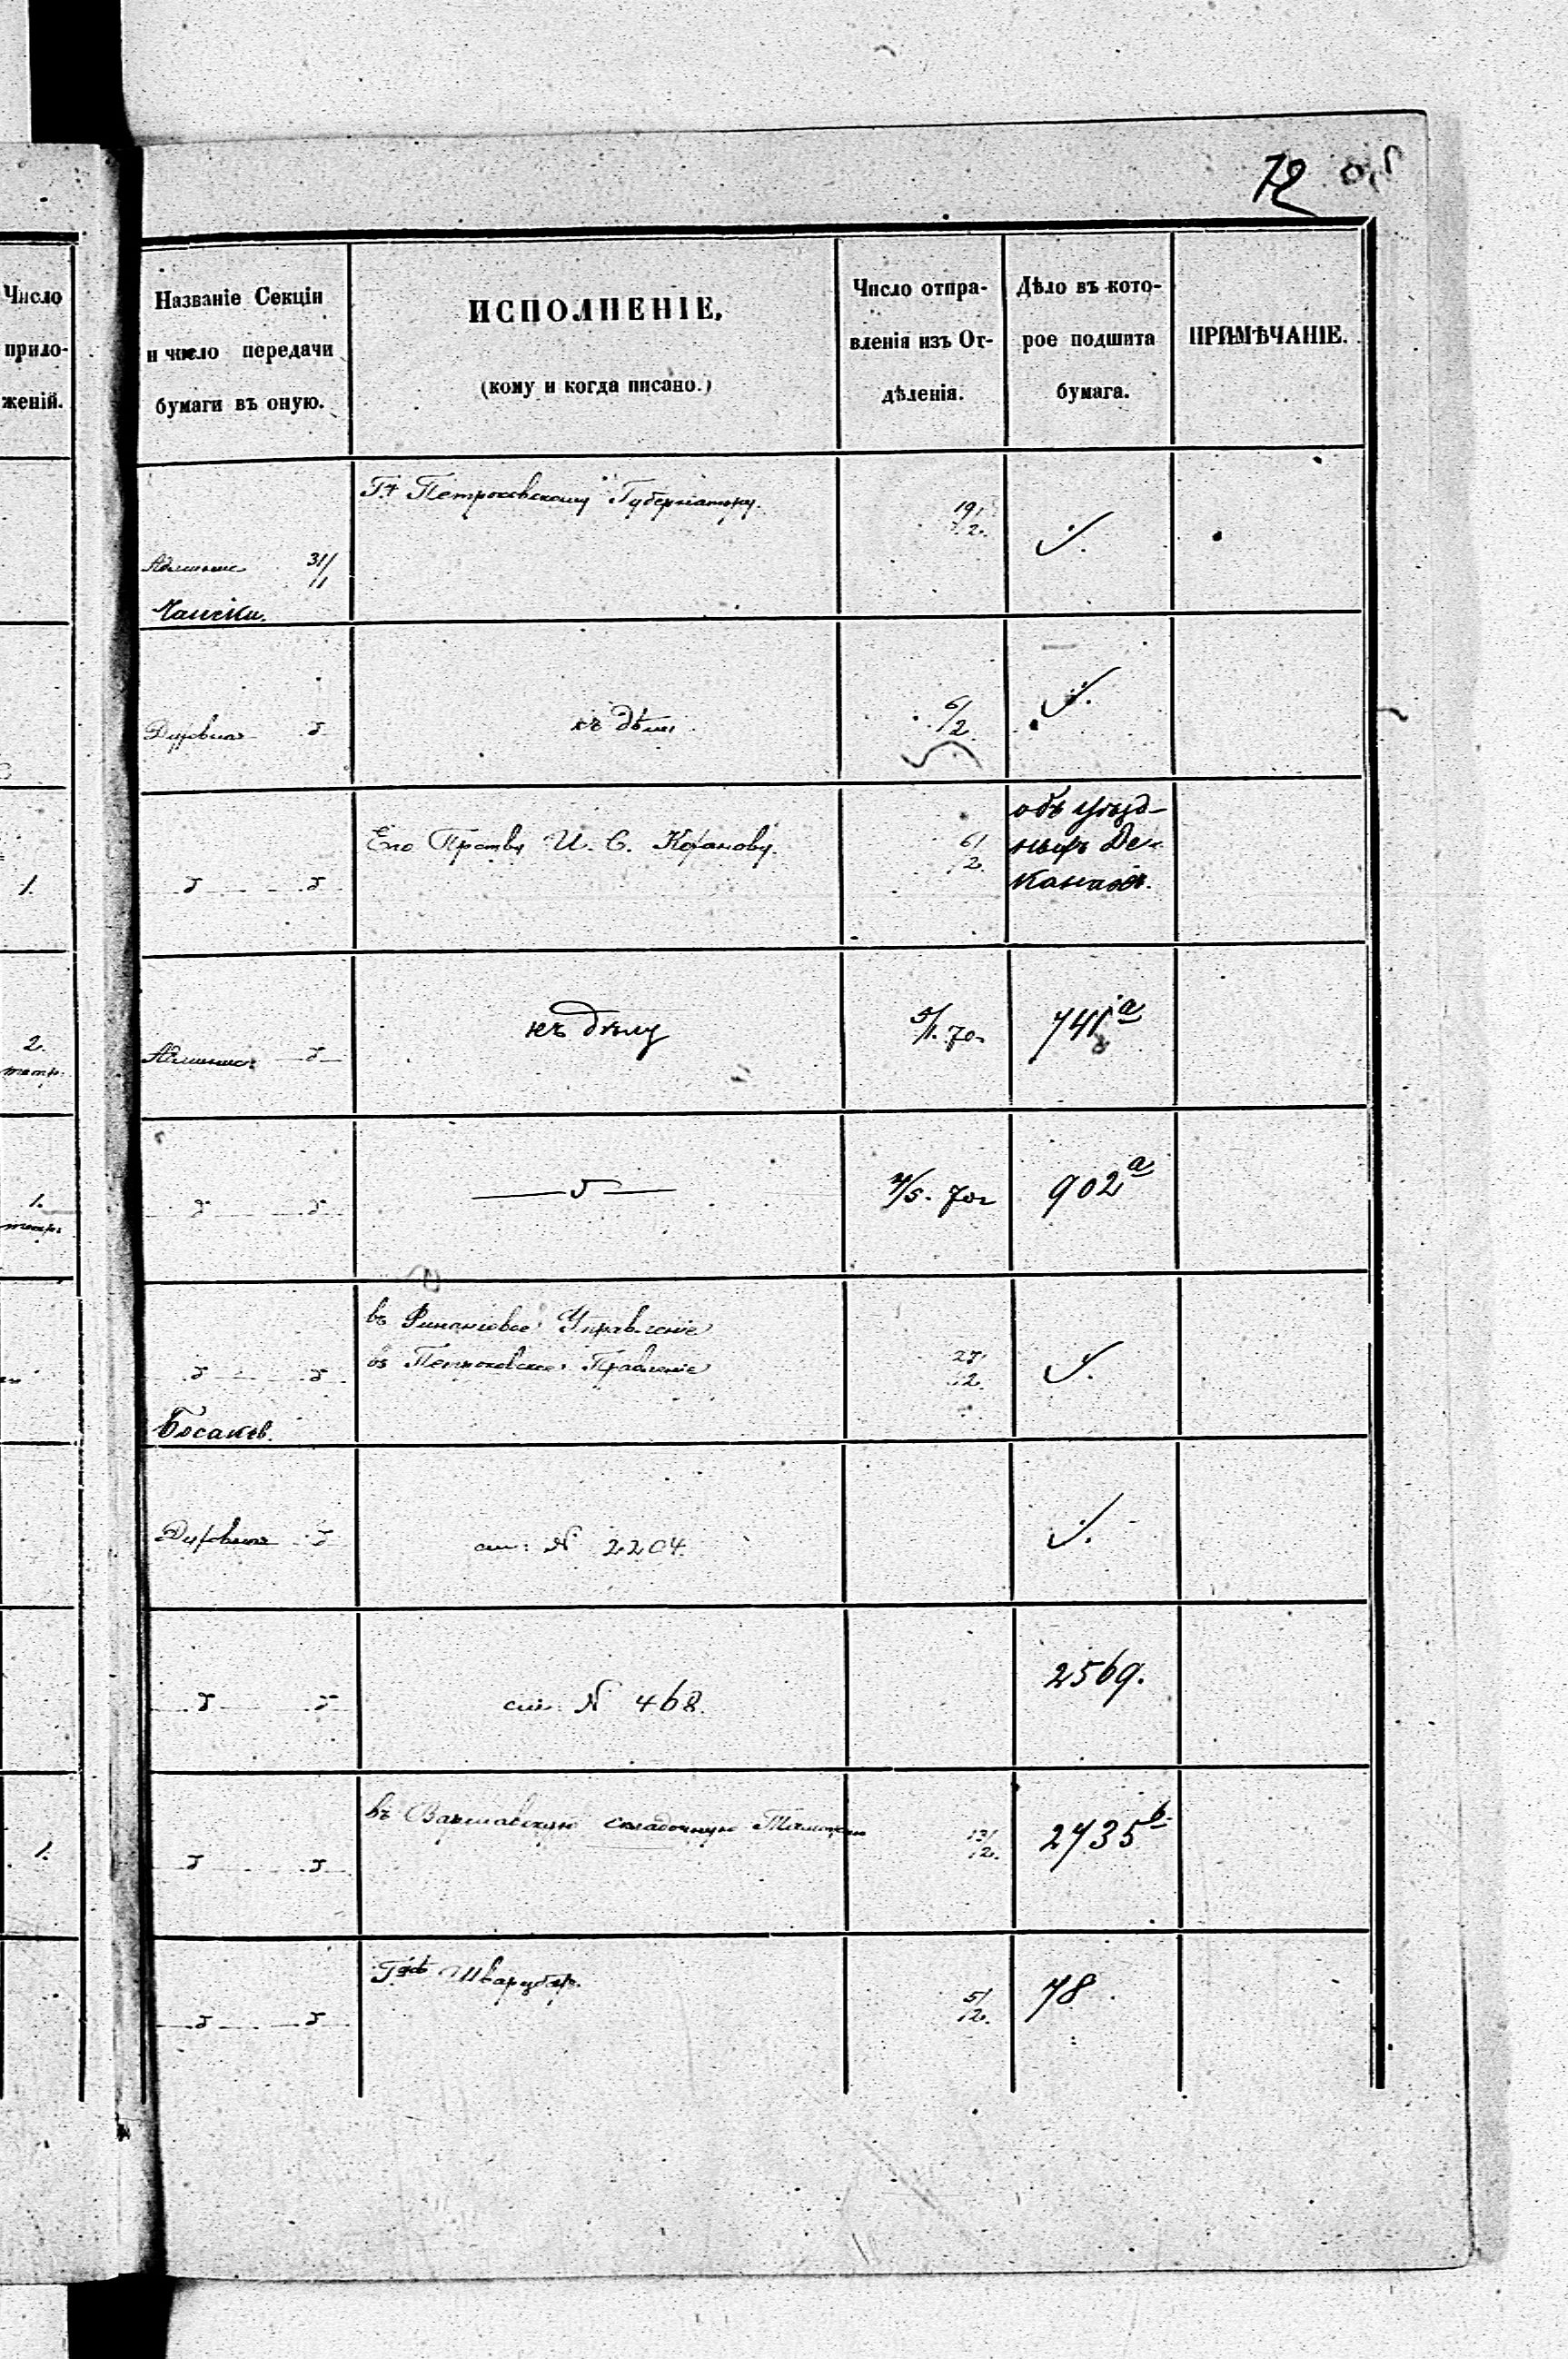 72
Число
прило-
женій.
Названіе Секціи
и число передачи
бумаги въ оную.
ИСПОЛНЕНІЕ.
(кому и когда писано.)
Число отпра-
вленія изъ От-
дѣленія.
Дѣло въ кото-
рое подшита
бумага.
ПРИМѢЧАНІЕ.
31/1
Петроковскому Губернатору.
19/2.
Духовная
къ дѣлу
6/2
1.
Его Прству И. С. Коханову.
6/2
объ уѣзд-
ныхъ Де-
канахъ.
2.
къ дѣлу
5/1. 70
741 а
1.
4/5. 70
902 а
въ Финансовое Управленіе
въ Петроковское Правленіе
27/2.
Духовная
см: N 2204.
см. N 468.
2569.
1.
въ Варшавскую складочную Таможню
13/2.
2735 b.
5/2.
78